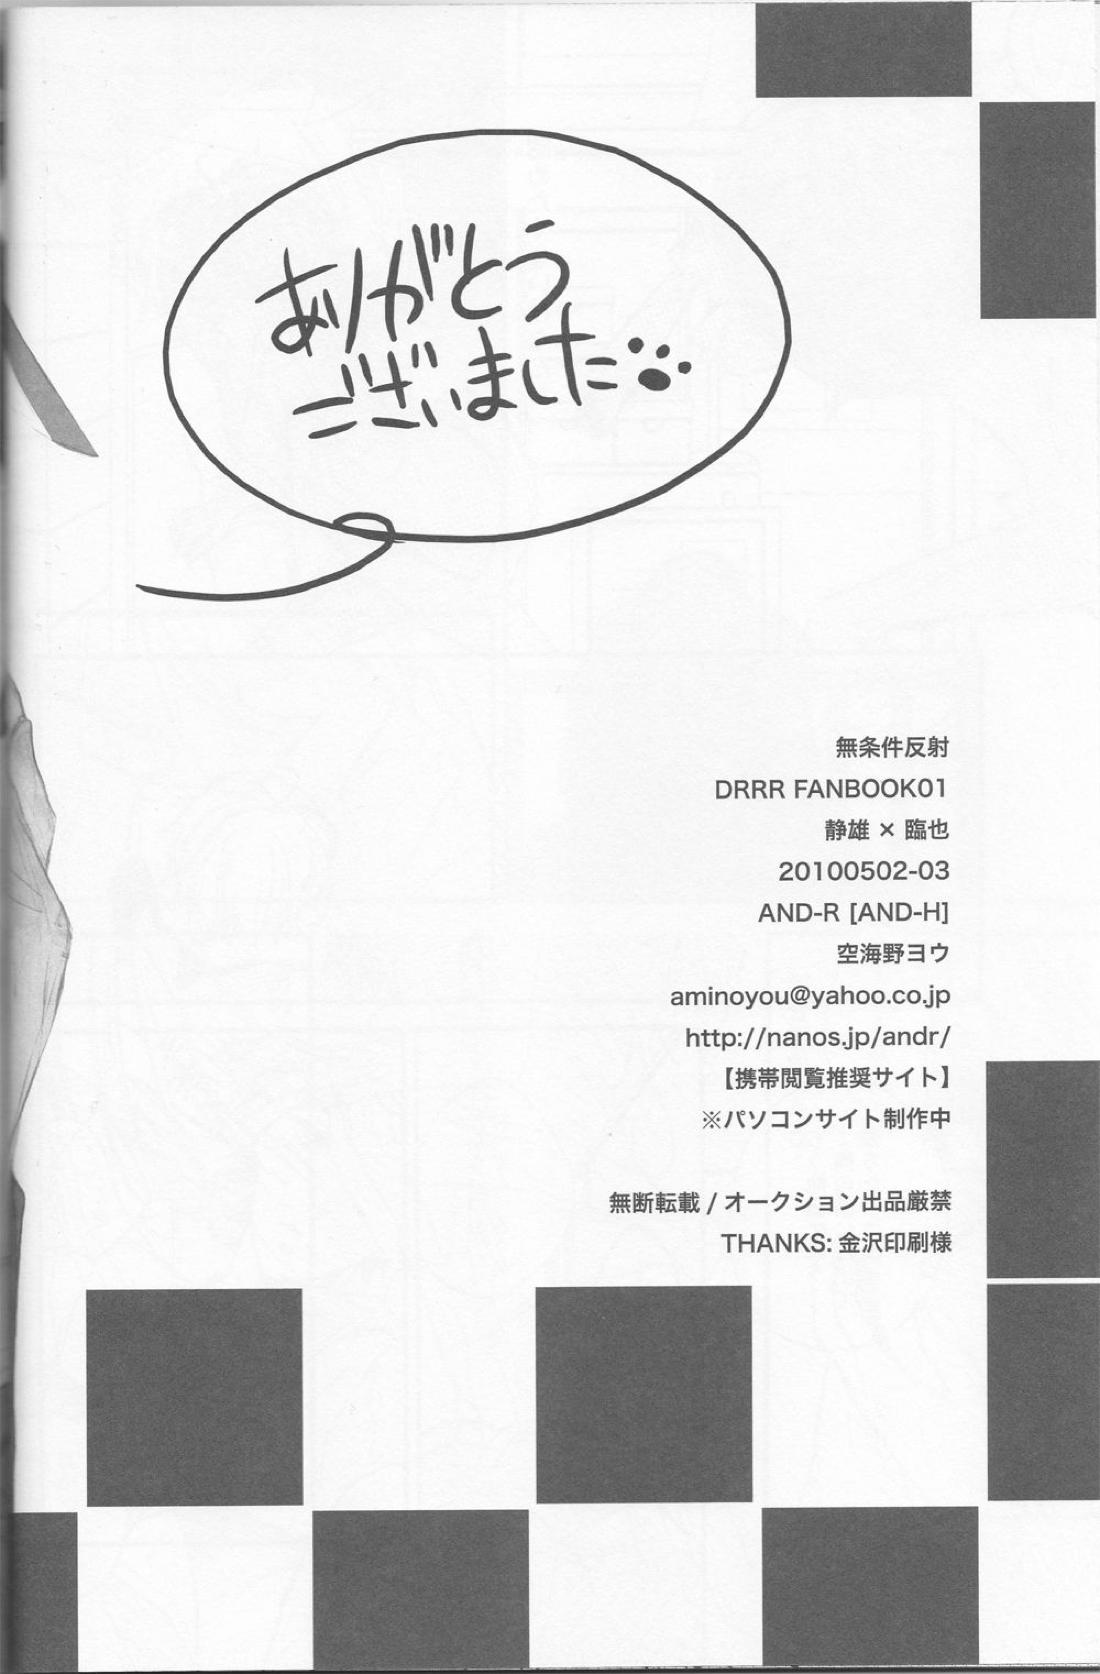 ありがとう
ございました
無条件反射
DRRR FANBOOK01
静雄 × 臨也
20100502-03
AND-R [AND-H]
空海野ヨウ
aminoyou@yahoo.co.jp
http://nanos.jp/andr/
【携帯閲覧推奨サイト】
※パソコンサイト制作中
無断転載 / オークション出品厳禁
THANKS: 金沢印刷様